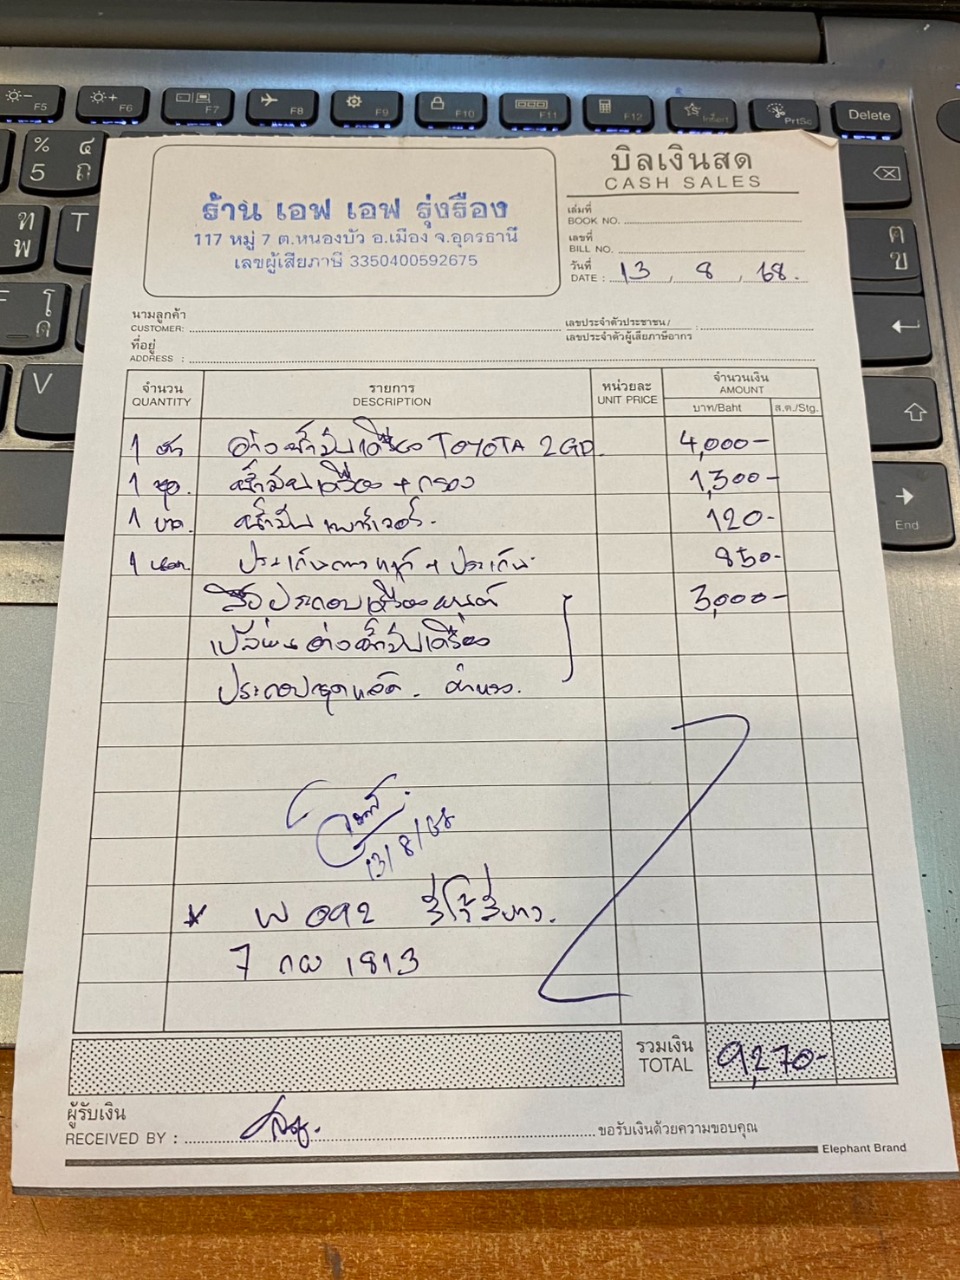 บิลเงินสด
CASH SALES
ร้าน เอฟ เอฟ รุ่งรือง
117 หมู่ 7 ต.หนองบัว อ.เมือง จ.อุดรธานี
เลขผู้เสียภาษี 3350400592675
เล่มที่
BOOK NO.
เลขที่
BILL NO.
วันที่
DATE : 13 / 8 / 68.
นามลูกค้า
CUSTOMER:
เลขประจำตัวประชาชน/
เลขประจำตัวผู้เสียภาษีอากร :
ที่อยู่
ADDRESS :
จำนวน รายการ หน่วยละ จำนวนเงิน
QUANTITY DESCRIPTION UNIT PRICE AMOUNT
บาท/Baht ส.ต./Stg.
1 อ่างน้ำมันเครื่อง TOYOTA 2GD. 4,000-
1 ชุด น้ำมันเครื่อง + กรอง 1,300-
1 ขวด. น้ำมันเพาเวอร์. 120-
1 ประเก็น + ประเก็น 850-
ประกอบเครื่องยนต์ 3,000-
เปลี่ยนอ่างน้ำมันเครื่อง
ประกอบ
13/8/68
* พ 092 รีโว้สีขาว.
7 กผ 1813
รวมเงิน
TOTAL 9,270-
ผู้รับเงิน
RECEIVED BY :
ขอรับเงินด้วยความขอบคุณ
Elephant Brand
F5
F6
F7
F8
F9
F10
F11
F12
Insert
PrtSc
Delete
% ๔
5 ถ
ท
พ
T
F โ
ด
V
ฅ
ฃ
End